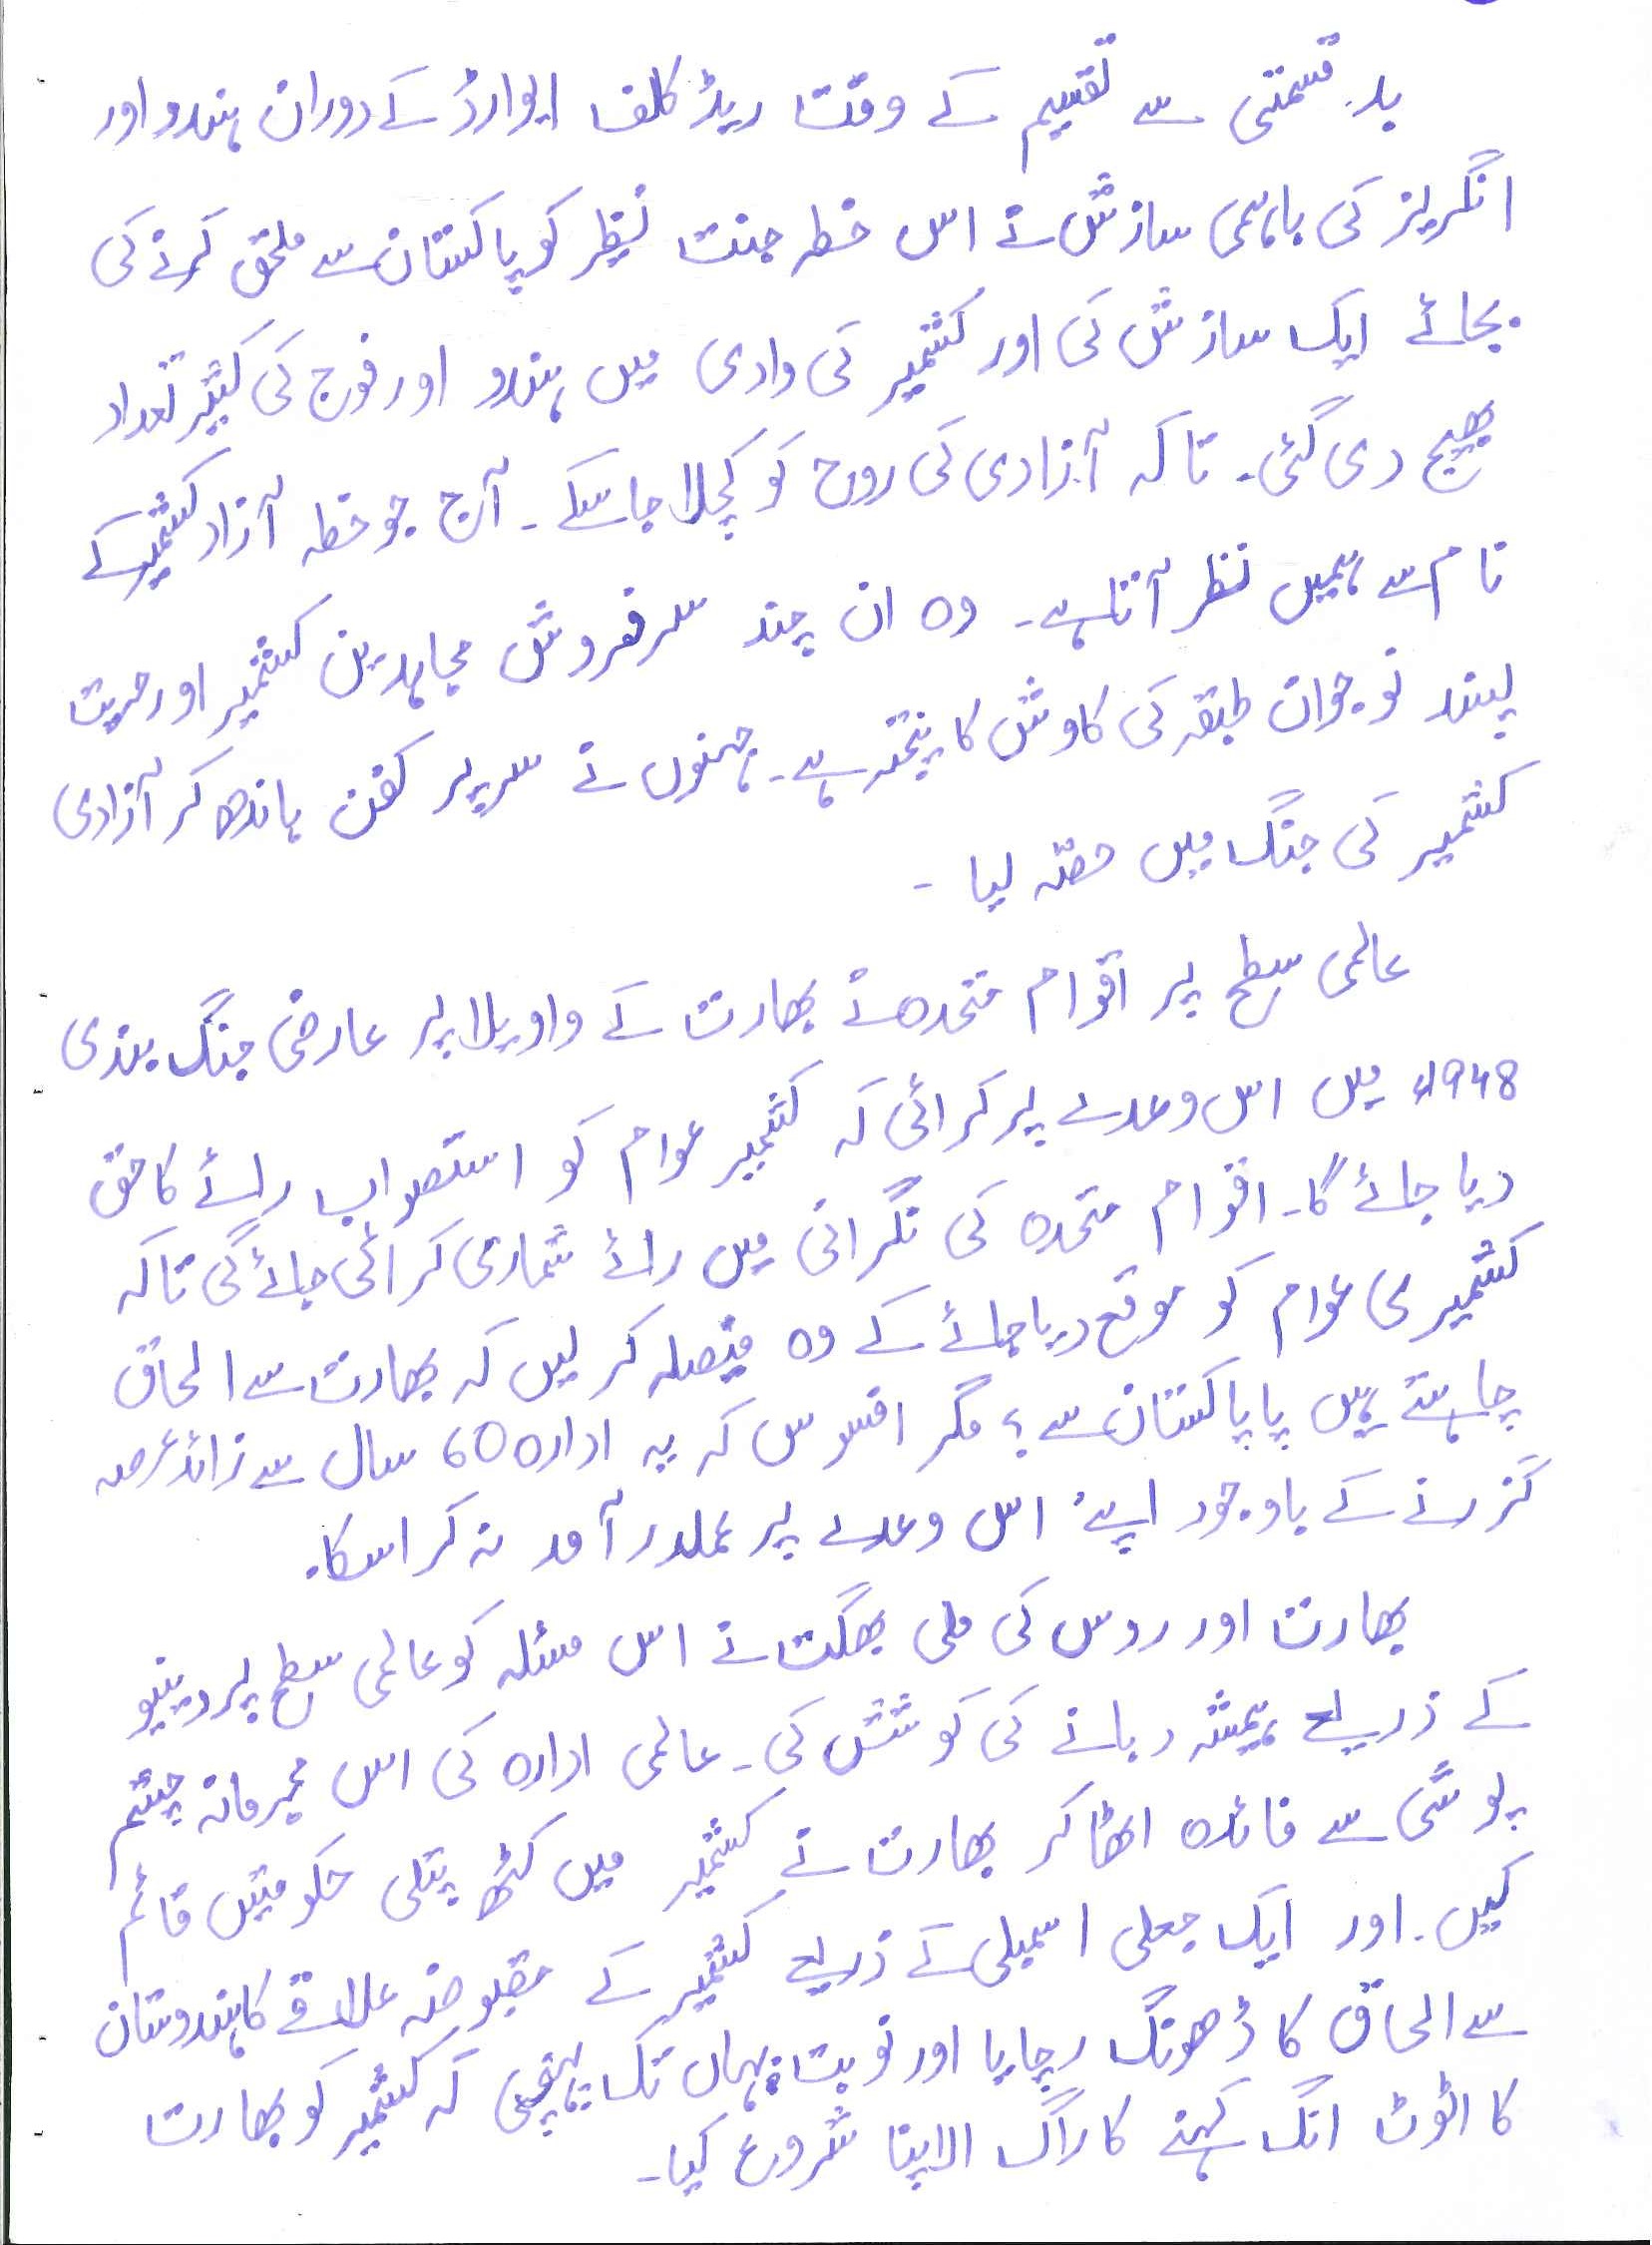 بدقسمتی سے تقسیم کے وقت ریڈ کلف ایوارڈ کے دوران ہندو اور
انگریز کی باہمی سازش نے اس خطہ جنت نظیر کو پاکستان سے ملحق کرنے کی
بجائے ایک سازش کی اور کشمیر کی وادی میں ہندو اور فوج کی کثیر تعداد
بھیج دی گئی۔ تاکہ آزادی کی روح کو کچلا جا سکے۔ آج جو خطہ آزاد کشمیر کے
نام سے ہمیں نظر آتا ہے۔ وہ ان چند سرفروش مجاہدین کشمیر اور حریت
پسند نوجوان طبقہ کی کاوش کا نتیجہ ہے۔ جنہوں نے سر پر کفن باندھ کر آزادی
کشمیر کی جنگ میں حصہ لیا۔
عالمی سطح پر اقوام متحدہ نے بھارت کے واویلا پر عارضی جنگ بندی
1948ء میں اس وعدے پر کرائی کہ کشمیر عوام کو استصواب رائے کا حق
دیا جائے گا۔ اقوام متحدہ کی نگرانی میں رائے شماری کرائی جائے گی تاکہ
کشمیری عوام کو موقع دیا جائے کے وہ فیصلہ کر لیں کہ بھارت سے الحاق
چاہتے ہیں یا پاکستان سے؟ مگر افسوس کہ یہ ادارہ 60 سال سے زائد عرصہ
گزرنے کے باوجود اپنے اس وعدے پر عملدرآمد نہ کرا سکا۔
بھارت اور روس کی ملی بھگت نے اس مسئلہ کو عالمی سطح پر ویٹو
کے ذریعے ہمیشہ دبانے کی کوشش کی۔ عالمی ادارہ کی اس مجرمانہ چشم
پوشی سے فائدہ اٹھا کر بھارت نے کشمیر میں کٹھ پتلی حکومتیں قائم
کیں۔ اور ایک جعلی اسمبلی کے ذریعے کشمیر کے مقبوضہ علاقے کا ہندوستان
سے الحاق کا ڈھونگ رچایا اور نوبت یہاں تک پہنچی کہ کشمیر کو بھارت
کا اٹوٹ انگ کہنے کا راگ الاپنا شروع کیا۔